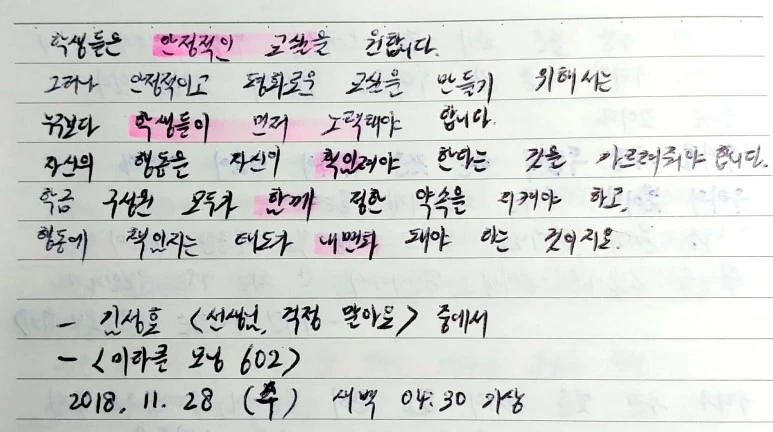 학생들은 안정적인 교실을 원합니다.
그러나 안정적이고 평화로운 교실을 만들기 위해서는
누구보다 학생들이 먼저 노력해야 합니다.
자신의 행동을 자신이 책임져야 한다는 것을 가르쳐줘야 합니다.
학급 구성원 모두가 함께 정한 약속을 지켜야 하고,
행동에 책임지는 태도가 내면화 돼야 하는 것이지요.
- 김성효 <선생님, 걱정 말아요> 중에서
- <미라클 모닝 602>
2018. 11. 28 (수) 새벽 04:30 기상